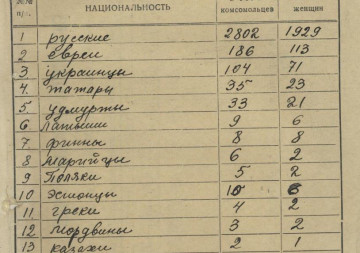 №№ НАЦИОНАЛЬНОСТЬ комсомольцев женщин
п/п.
1 русские 2802 1929
2 евреи 186 113
3 украинцы 104 71
4. татары 35 23
5 удмурты 33 21
6 Латыши 9 6
7 финны 8 8
8 Марийцы 6 2
9 Поляки 5 2
10 Эстонцы 10 6
11 греки 4 2
12 мордвины 3 2
13 казахи 2 1